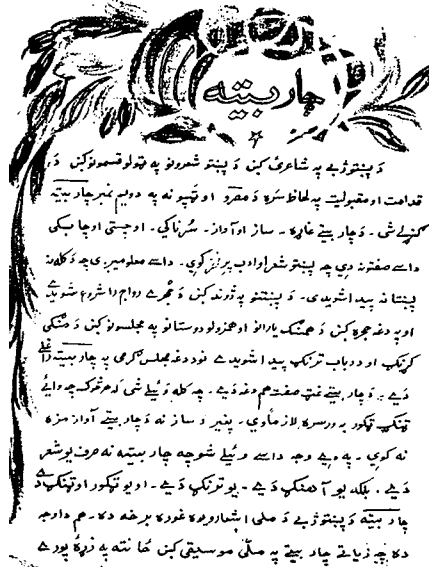 چار بیتہ
د پښتو ژبے پہ شاعرۍ کښ د پښتو شعرونو پہ ټولو قسمونو کښ د
قدامت او مقبولیت پہ لحاظ سره د مصرو او ټپو نہ پہ دویم نمبر چار بیتہ
کڼلے شی۔ د چار بیتے غاړه۔ ساز او آواز۔ سُرناکی۔ او چستی او چابکی
داسے صفتونہ دی چہ پښتو شعر او ادب پرے ناز کوی۔ داسے معلومیږی چہ د کلہ نہ
پښتانہ پیدا شویدی۔ د پښتنو پہ ژوند کښ د حُجرے دوام دا شروع شویدے
او پہ دغہ حجره کښ د یارانو او همزولو دوستانو پہ مجلسونو کښ د منګی
کړنګ او د رباب ترنګ پیدا شویدے نو د دغہ مجلس ګرمی پہ چار بیتہ
دے۔ د چار بیتے غټ صفت هم دغہ دے۔ چہ کلہ وئیلے شی نو هر څوک چہ وائے
ټنګ ټکور ورسره لازماوی۔ بغیر د ساز نہ د چار بیتے آواز مزه
نہ کوی۔ پہ دے وجہ داسے وئیلے شو چہ چار بیتہ نہ صرف یو شعر
دے۔ بلکہ یو آهنګ دے۔ یو ترنګ دے۔ او یو ټکور او ټنګ دے
چار بیتہ د پښتو ژبے د ملی اشعارو یوه غوره برخہ ده۔ هم دا وجہ
ده چہ زیاتے چار بیتے پہ ملّی موسیقی کښ ځانتہ پہ زړه پورے